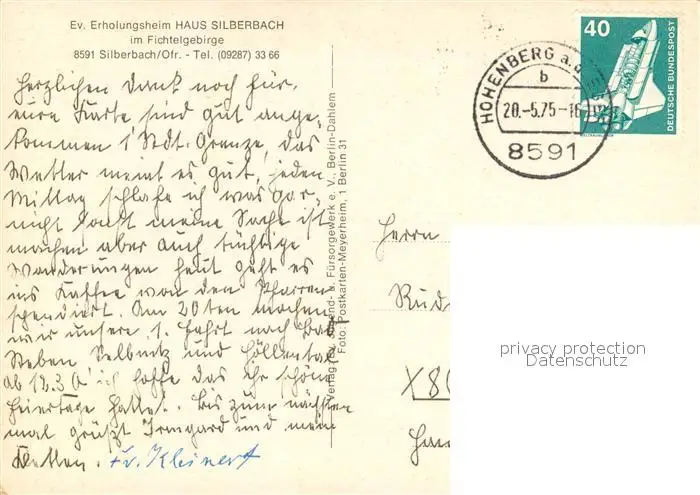 Ev. Erholungsheim HAUS SILBERBACH
im Fichtelgebirge
8591 Silberbach/Ofr. - Tel. (09287) 33 66
Herzlichen Dank noch für
eure Karte sind gut ange-
kommen 1 Stdt. Grenze, das
Wetter meint es gut, jeden
Mittag schlafe ich was gar
nicht sonst meine Sache ist
machen aber auch tüchtige
Wanderungen heut geht es
ins Kaffee von den Pfarren
spendiert. Am 20ten machen
wir unsere 1. Fahrt nach Bad
Steben Selbnitz und Höllental
ab 12.30 ich hoffe das ihr schöne
Feiertage hattet. Bis zum nächsten
mal grüßt Irmgard und mein
Fr. Kleinert
Verlag: Ev. Jugend- u. Fürsorgewerk e. V., Berlin-Dahlem
Foto: Postkarten-Meyerheim, 1 Berlin 31
HOHENBERG a.d.
b
20.-5.75-16
8591
40
DEUTSCHE BUNDESPOST
Herrn
Rud
X80
privacy protection
Datenschutz